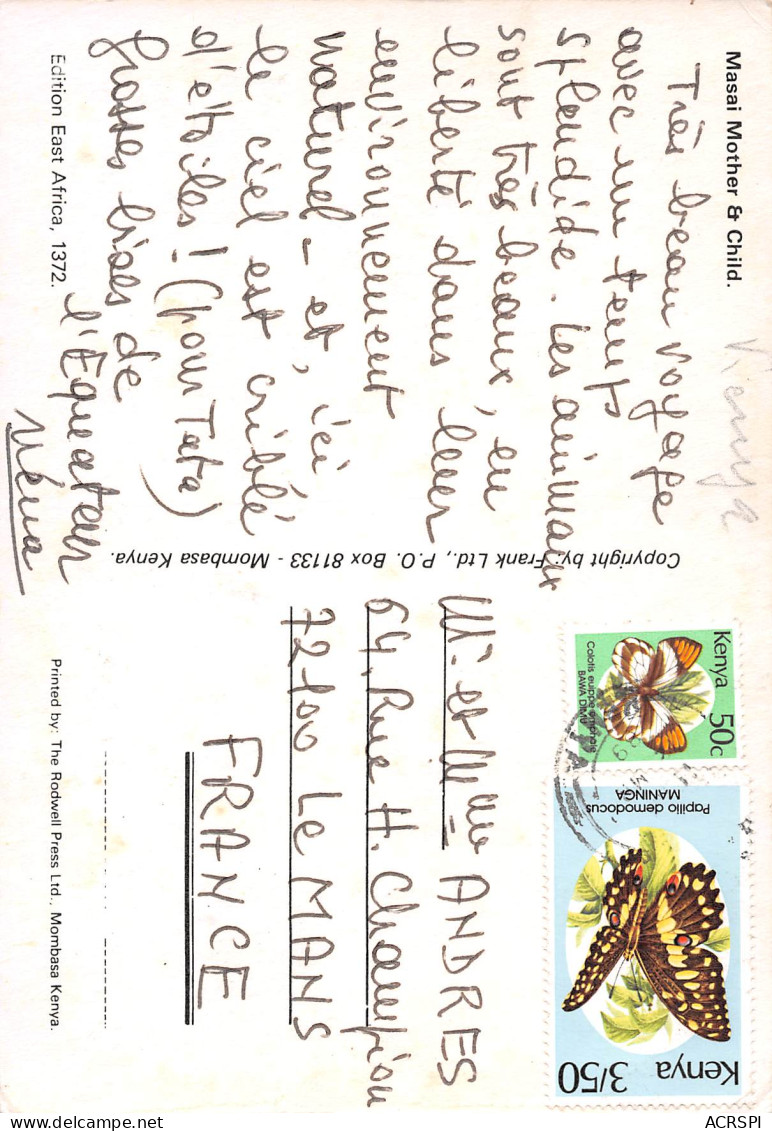 Masai Mother & Child.
Kenya
Très beau voyage
avec un temps
splendide. Les animaux
sont très beaux, en
liberté dans leur
environnement
naturel - et, ici
le ciel est criblé
d'étoiles! (pour Tata)
Grosses bises de
l'Equateur
Edition East Africa, 1372.
Copyright by: Frank Ltd., P.O. Box 81133 - Mombasa Kenya.
Kenya 50c
Colotis euippe omphale
BAWA DIMU
Papilio demodocus
MANINGA
Kenya 3/50
M. et Mme ANDRES
64, Rue H. Champion
72100 Le MANS
FRANCE
Printed by: The Rodwell Press Ltd., Mombasa Kenya.
ACRSPI